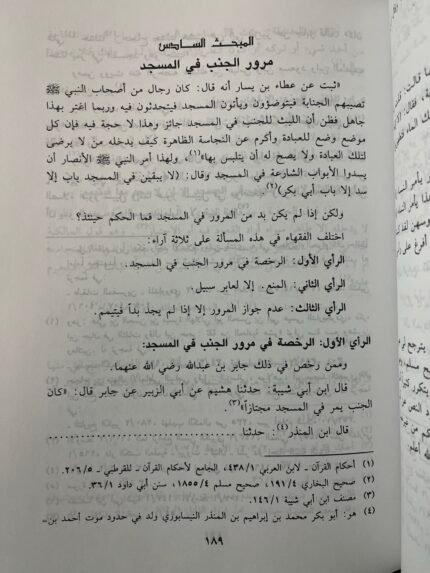 المبحث السادس
مرور الجنب في المسجد
«ثبت عن عطاء بن يسار أنه قال: كان رجال من أصحاب النبي ﷺ
تصيبهم الجنابة فيتوضؤون ويأتون المسجد فيتحدثون فيه وربما اغتر بهذا
جاهل فظن أن اللبث للجنب في المسجد جائز وهذا لا حجة فيه فإن كل
موضع وضع للعبادة وأكرم عن النجاسة الظاهرة كيف يدخله من لا يرضى
لتلك العبادة ولا يصح له أن يتلبس بها»(١)، ولهذا أمر النبي ﷺ الأنصار أن
يسدوا الأبواب الشارعة في المسجد وقال: (لا يبقين في المسجد باب إلا
سد إلا باب أبي بكر)(٢).
ولكن إذا لم يكن بد من المرور في المسجد فما الحكم حينئذ؟
اختلف الفقهاء في هذه المسألة على ثلاثة آراء:
الرأي الأول: الرخصة في مرور الجنب في المسجد.
الرأي الثاني: المنع. إلا لعابر سبيل.
الرأي الثالث: عدم جواز المرور إلا إذا لم يجد بداً فيتيمم.
الرأي الأول: الرخصة في مرور الجنب في المسجد:
وممن رخص في ذلك جابر بن عبدالله رضي الله عنهما.
قال ابن أبي شيبة: حدثنا هشيم عن أبي الزبير عن جابر قال: «كان
الجنب يمر في المسجد مجتازاً»(٣).
قال ابن المنذر(٤): حدثنا ................................
(١) أحكام القرآن ـ لابن العربي ٤٣٨/١، الجامع لأحكام القرآن ـ للقرطبي ـ ٢٠٦/٥.
(٢) صحيح البخاري ١٩١/٤، صحيح مسلم ١٨٥٥/٤، سنن أبي داود ٣٦/١.
(٣) مصنف ابن أبي شيبة ١٤٦/١.
(٤) هو: أبو بكر محمد بن إبراهيم بن المنذر النيسابوري ولد في حدود موت أحمد بن=
١٨٩